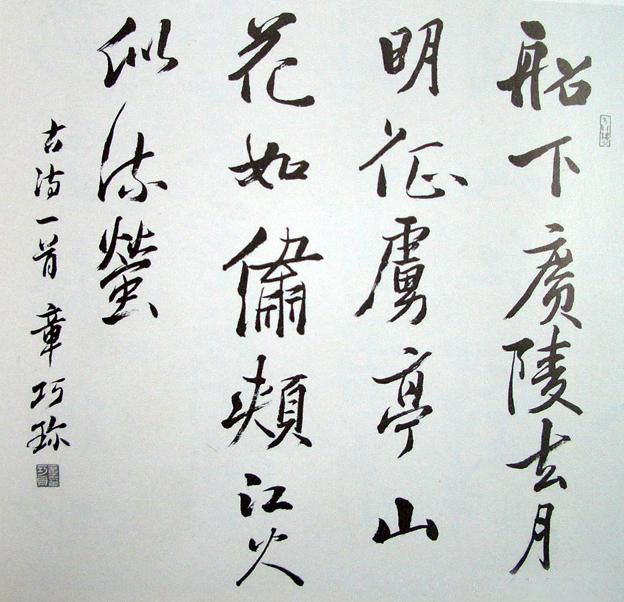 船下廣陵去月
明征虜亭山
花如繡頰江火
似流螢
古詩一首 章巧珍